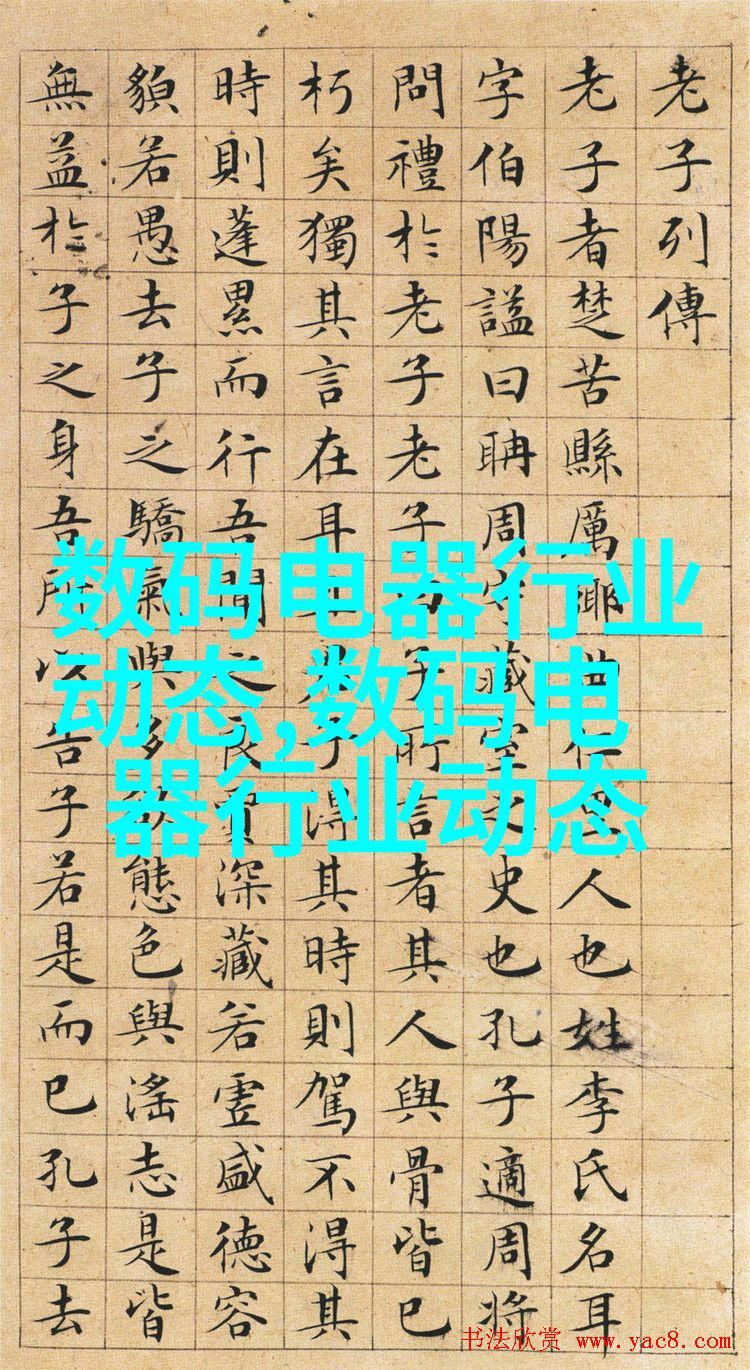 老子列傳
老子者楚苦縣厲鄉曲仁里人也姓李氏名耳
字伯陽謚曰聃周守藏室之史也孔子適周將
問禮於老子老子曰子所言者其人與骨皆已
朽矣獨其言在耳且君子得其時則駕不得其
時則蓬累而行吾聞之良賈深藏若虛盛德容
貌若愚去子之驕氣與多欲態色與淫志是皆
無益於子之身吾所以告子若是而已孔子去
数码电器行业
动态,数码电
器行业动态
书法欣赏 www.yac8.com